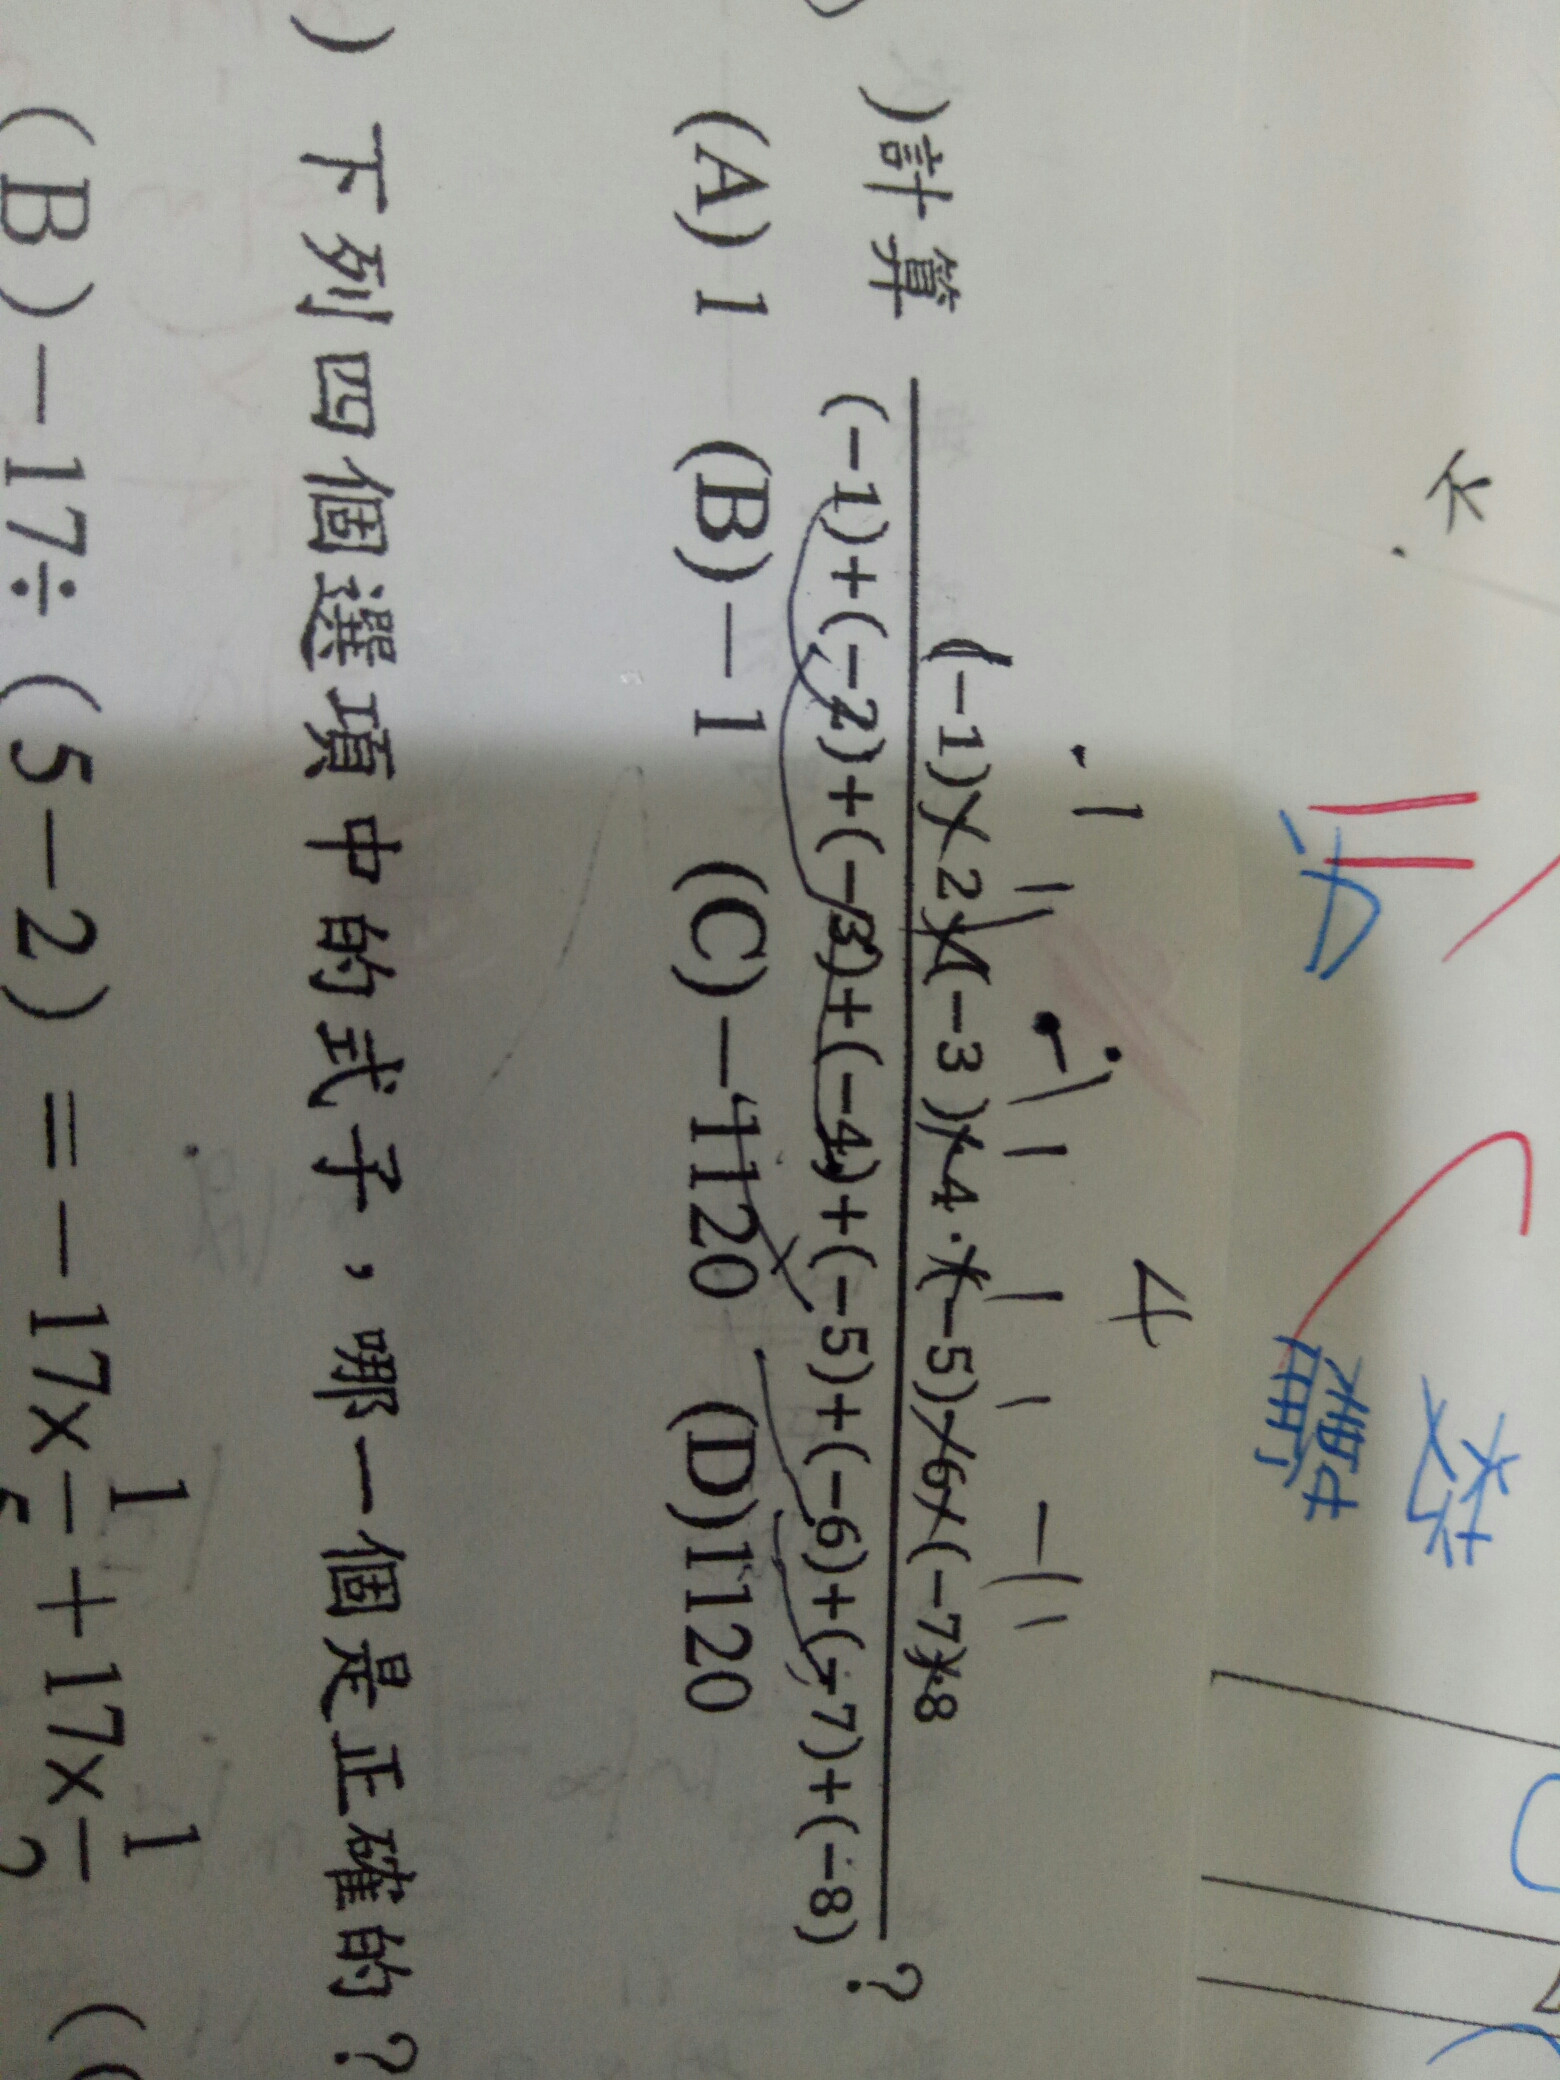 不
4
-1
)計算 (-1)×2×(-3)×4×(-5)×6×(-7)×8
(-1)+(-2)+(-3)+(-4)+(-5)+(-6)+(-7)+(-8) ?
(A)1 (B)-1 (C)-1120 (D)1120
)下列四個選項中的式子，哪一個是正確的？
(B)-17÷(5-2)=-17×1/5+17×1/2